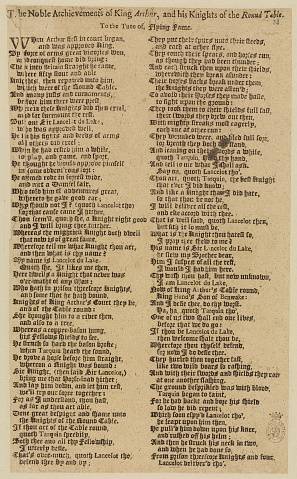 The Noble Atchievements of King Arthur, and his Knights of the Round Table.
To the Tune of, Flying Fame.
WHen Arthur first in court began,
and was approved King,
By force of arms great victories won,
and conquest home did bring:
Then into Britain straight he came,
where fifty stout and able
Knights then repaired unto him,
which were of the Round Table.
And many justs and turnaments,
before him there were prest,
Wherein these Knights did then excel,
and far surmount the rest.
But one Sir Lancelot du Lake,
who was approved well,
He in his fights and deeds of arms
all others did excel:
When he had rested him a while,
to play, and game, and sport,
He thought he would approve himself
in some adventrous sort:
He armed rode in forrest wide,
and met a Damsel fair,
Who told him of adventures great,
whereto he gave good ear.
Why should not I? quoth Lancelot tho,
for that cause came I hither.
Thou seem'st, quoth she, a Knight right good
and I will bring thee hither,
Whereas the mightiest Knight doth dwell
that now is of great fame,
Wherefore tell me what Knight thou art,
and then what is thy name?
My name is Lancelot du Lake.
Quoth she, it likes me then,
Here dwells a Knight that never was
o'er-matcht of any Man;
Who hath in prison threescore Knights,
and some that he hath bound,
Knights of King Arthur's Court they be,
and of the Table round:
She brought him to a river then,
and also to a tree,
Whereas a copper-bason hung,
his Fellows shields to see.
He struck so hard the bason broke,
when Tarquin heard the sound,
He drove a horse before him straight,
whereon a Knight was bound:
Sir Knight, then said Sir Lancelot,
bring me that Horse-load hither,
And lay him down, and let him rest,
we'll try our force together:
For as I understand, thou hast,
as far as thou art able,
Done great despight and shame unto
the Knights of the Round Table.
If thou art of the Table round,
quoth Tarquin speedily,
Both thee and all thy Fellowship,
I utterly defie.
That's over-much, quoth Lancelot tho,
defend thee by and by;
They put their spurs unto their steeds,
and each at other flye.
They coucht their spears, and horses ran,
as though they had been thunder;
And each struck then upon their shields,
wherewith they break asunder:
Their horses backs brake under them,
the Knights they were aston'd,
To avoid their horses they made haste,
to fight upon the ground:
They took them to their shields full fast,
their swords they drew out then,
With mighty strokes most eagerly,
each one at other ran:
They wounded were, and bled full sore,
for breath they both did stand,
And leaning on their swords a while,
quoth Tarquin, hold thy hand,
And tell to me what I shall ask.
Say on, quoth Lancelot tho,
Thou art, quoth Tarquin, the best Knight
that ever I did know;
And like a Knight that I did hate,
so that thou be not he,
I will deliver all the rest,
and eke accord with thee.
That is well said, quoth Lancelot then,
but sith it so must be,
What is the Knight thou hatest so,
I pray thee shew to me?
His name is Sir Lancelot du Lake,
he slew my Brother dear,
Him I suspect of all the rest,
I would I had him here.
Thy wish thou hast, but now unknown,
I am Lancelot du Lake,
Now of King Arthur's Table round,
King Hand's Son of Benwake:
And I defie thee, do thy worst.
Ha, ha, quoth Tarquin tho,
One of us two shall end our lives,
before that we do go:
If thou be Lancelot du Lake,
then welcome shalt thou be,
Wherefore then thyself defend,
for now I do defie thee.
They hurled then together fast,
like two wild boars so rashing,
And with their swords and shields they ran
at one another slashing.
The ground besprinkled was with blood,
Tarquin began to faint,
For he had backt and bore his shield
so low he did repent;
Which soon espy'd Lancelot tho,
he leapt upon him then,
He pull'd him down upon his knee,
and rushed off his helm;
And then he struck his neck in two,
and when he had done so,
From prison threescore Knights and four,
Lancelot deliver'd tho'.